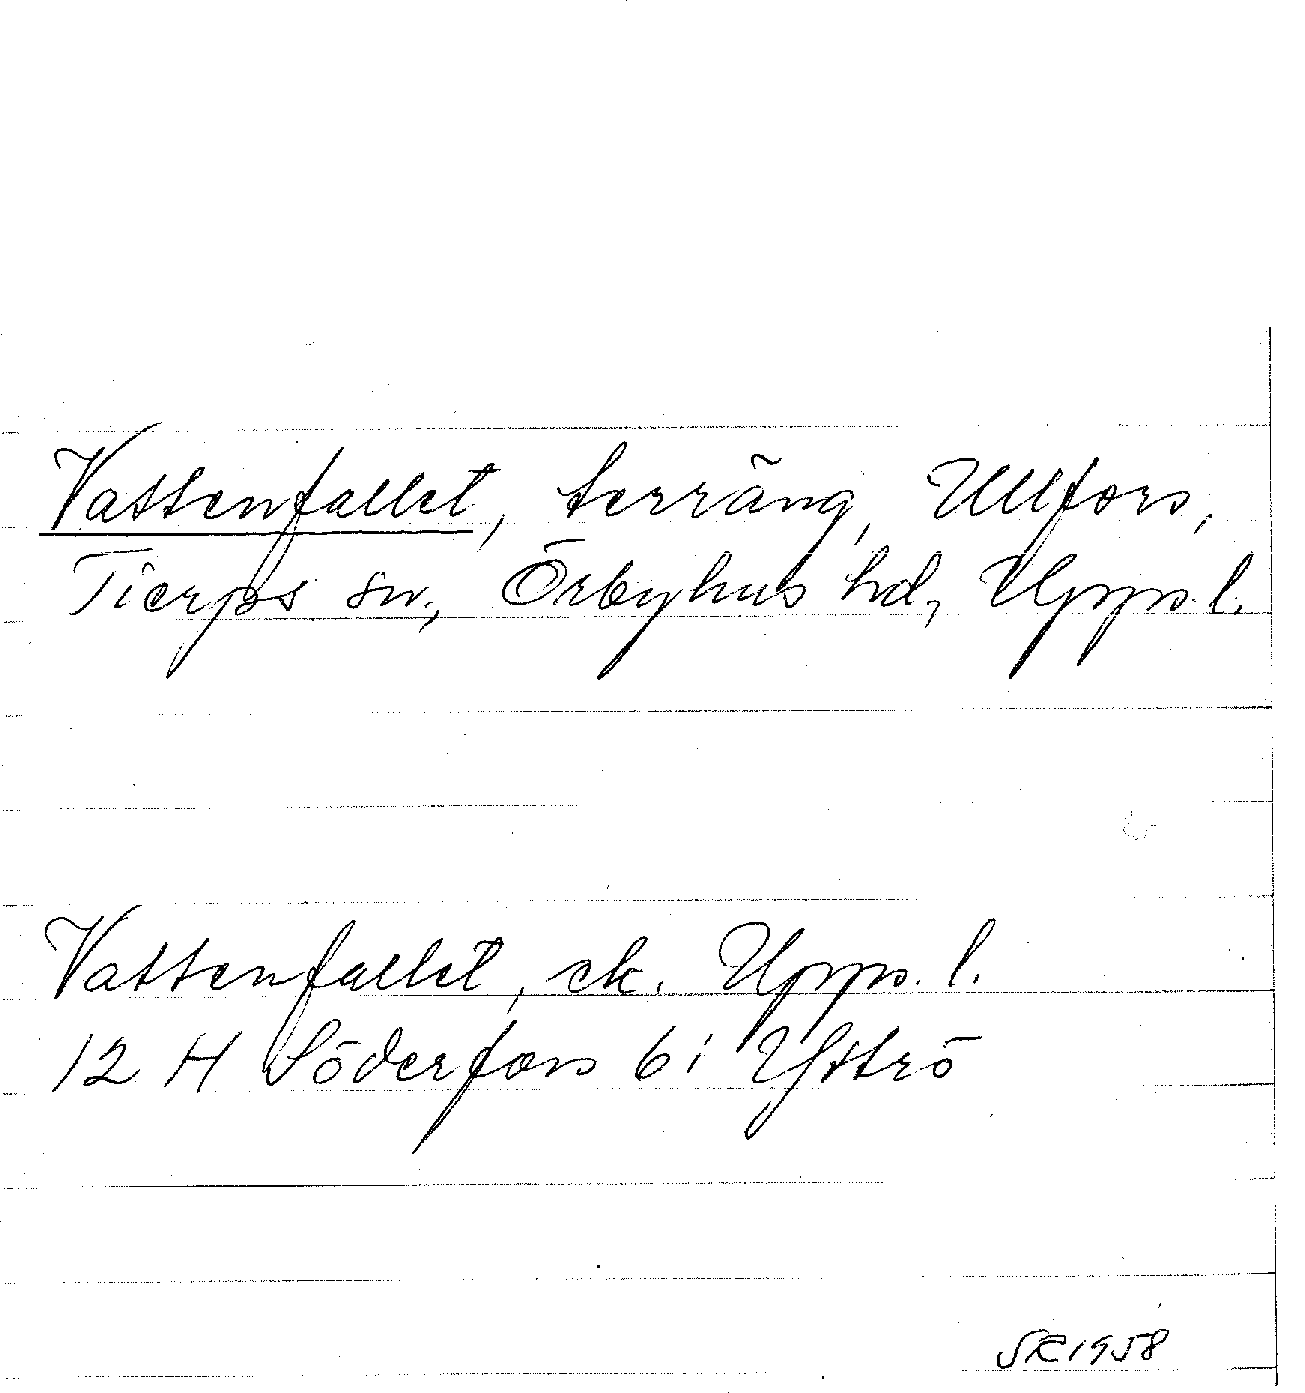 Vattenfallet, terräng, Ullfors,
Tierps sn, Örbyhus hd, Upps. l.
Vattenfallet, ek. Upps. l.
12 H Söderfors 6i Yttrö
SR 1958